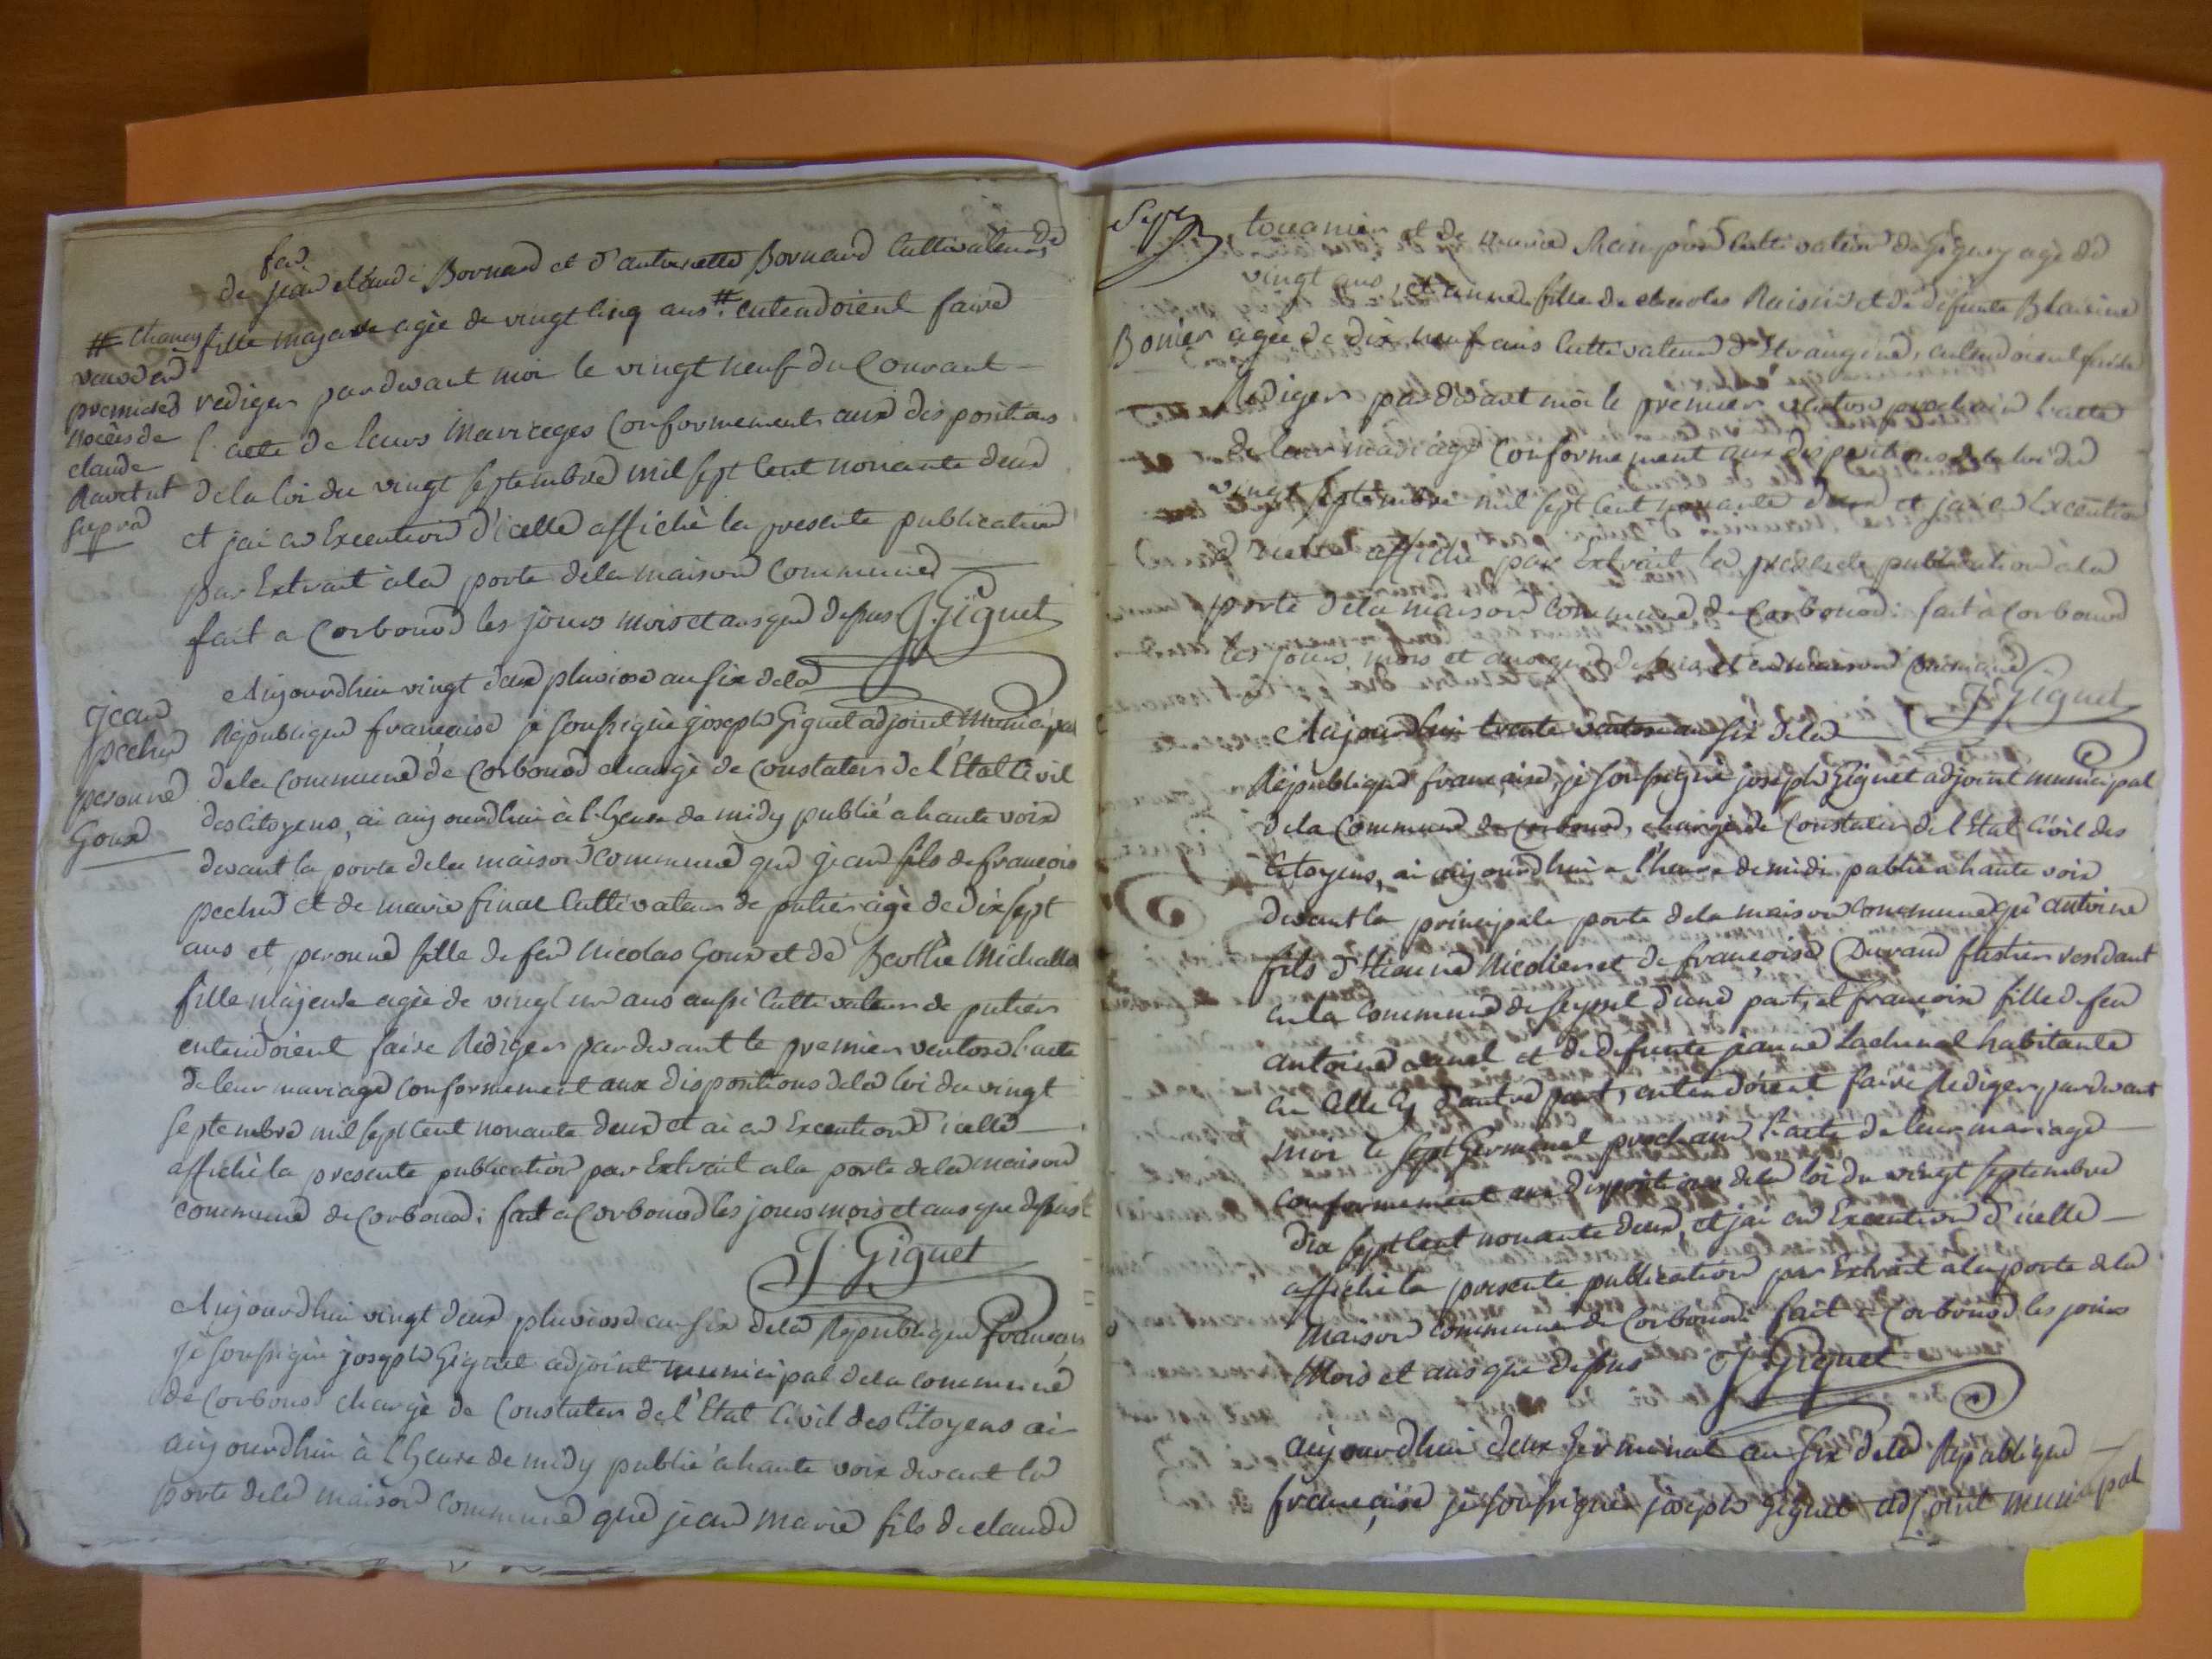 feu
de jean claude Bornard et d'antoinette Bornard Cultivateurs de
# Chaney
veuve en
premieres
noces de
claude
Ravet ut
supra
fille majeure agée de vingt cinq ans # entendoient faire
rediger pardevant moi le vingt neuf du Courant
l'acte de leurs Mariages Conformement aux dispositions
de la loi du vingt septembre mil sept cent nonante deux
et jai en Execution d'icelle affiché la presente publication
par Extrait à la porte de la maison Commune
fait a Corbonod les jours mois et ans que dessus J. Giguet
jean
pechu
peronne
Goux
Aujourdhui vingt deux pluviose an six de la
Republique francaise je soussigné joseph Giguet adjoint Municipal
de la commune de Corbonod chargé de Constater de l'Etat Civil
des Citoyens, ai aujourdhui à l'heure de midy publié a haute voix
devant la porte de la maison Commune que jean fils de francois
pechu et de marie final Cultivateur de putier agé de dix sept
ans et peronne fille de feu Nicolas Goux et de Berthe Michallet
fille majeure agée de vingt un ans aussi Cultivateur de putier
entendoient faire Rediger pardevant le premier ventose l'acte
de leur mariage Conformement aux dispositions de la loi du vingt
septembre mil sept cent nonante deux et ai en Execution d'icelle
affiché la presente publication par Extrait a la porte de la maison
commune de Corbonod : fait a Corbonod les jours mois et ans que dessus
J. Giguet
Aujourdhui vingt deux pluviose an six de la Republique francaise
je soussigné joseph Giguet adjoint municipal de la commune
de Corbonod chargé de Constater de l'Etat Civil des Citoyens ai
aujourdhui à l'heure de midy publié a haute voix devant la
porte de la maison commune que jean marie fils de claude
Sept
et de Cultivateur de Gigney agé de
vingt ans, et anne fille de charles Raisin et de defunte Blaisine
Bonier agée de dix neuf ans Cultivateur d'Etrangine, entendoient faire
Rediger par devant moi le premier ventose prochain l'acte
de leur mariage Conformement aux dispositions de la loi du
vingt septembre mil sept cent nonante deux et jai en Execution
d'icelle affiché par Extrait la presente publication a la
porte de la maison Commune de Corbonod : fait à Corbonod
les jours, mois et ans que dessus et en maison Commune
J. Giguet
Aujourdhui trente ventose an six de la
Republique francaise, je soussigné joseph Giguet adjoint municipal
de la Commune de Corbonod, chargé de Constater de l'Etat Civil des
Citoyens, ai aujourdhui a l'heure de midi publié a haute voix
devant la principale porte de la maison Commune qu'antoine
fils d'Etienne Nicolier et de françoise Durand residant
en la Commune de Seyssel d'une part, et françoise fille de feu
antoine et de defunte jeanne Lachenal habitante
en Celle Cy d'autre part, entendoient faire Rediger pardevant
moi le sept Germinal prochain l'acte de leur mariage
Conformement aux dispositions de la loi du vingt septembre
dix sept cent nonante deux, et jai en Execution d'icelle
affiché la presente publication par Extrait a la porte de la
Maison commune de Corbonod fait a Corbonod les jours
Mois et ans que dessus J. Giguet
aujourdhui deux Germinal an six de la Republique
française je soussigné joseph Giguet adjoint municipal